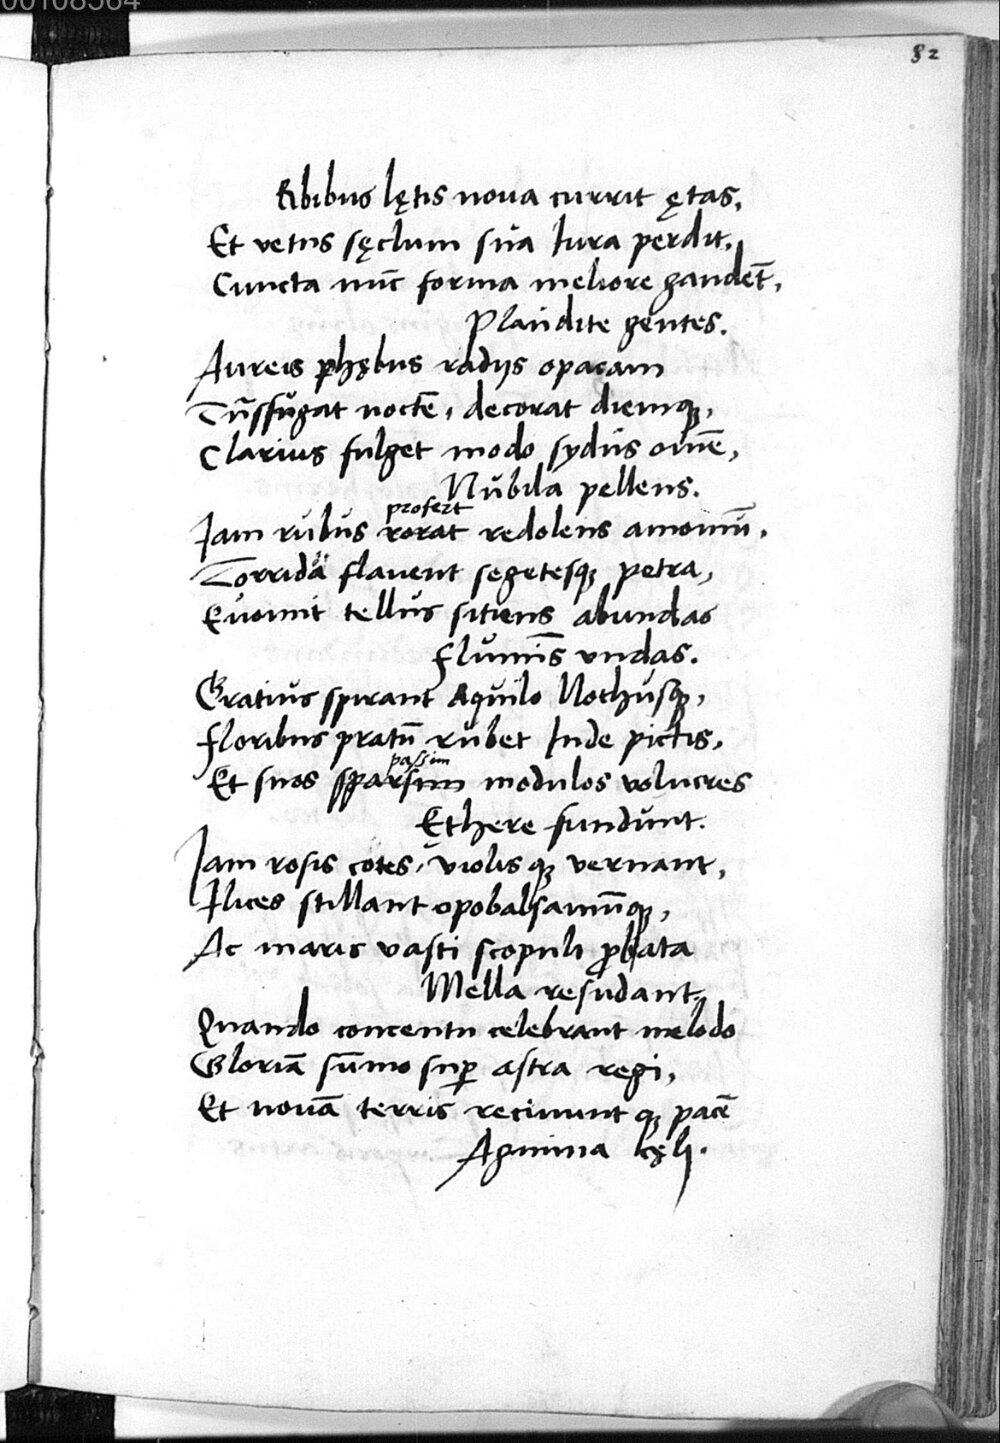 00108564
82
Ribibus lętis noua currit ętas,
Et vetus sęclum sua Iura perdit,
Cuncta nūc forma meliore gaudēt,
Plaudite gentes.
Aureis phębus radijs opacam
Trāsfugat noctē, decorat diemqꝫ,
Clarius fulget modo sydus omē,
Nubila pellens.
profert
Iam rubus rorat redolens amomū,
Torrida flauent segetesqꝫ petra,
Euomit tellus sitiens abundas
Flumīs vndas.
Gratius spirant Aquilo Nothusqꝫ,
Floribus pratū rubet Inde pictis,
passim
Et suos sparsim modulos volucres
Ethere fundunt.
Iam rosis cotes, violis qꝫ vernant,
Ilices stillant opobalsamūqꝫ,
Ac maris vasti scopuli ꝓbata
Mella resudant.
Quando concentu celebrant melodo
Gloriā sūmo suꝑ astra regi,
Et nouā terris recinunt qꝫ pacē
Agmina cęli.